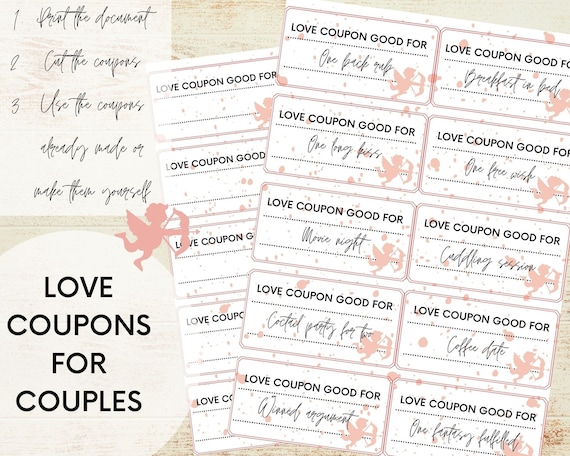 1 Print the document
2 Cut the coupons
3 Use the coupons
already made or
make them yourself
LOVE
COUPONS
FOR
COUPLES
LOVE COUPON GOOD FOR
LOVE COUPON GOOD FOR
LOVE COUPON GOOD FOR
LOVE COUPON GOOD FOR
LOVE COUPON GOOD
LOVE COUPON GOOD FOR
One back rub
LOVE COUPON GOOD FOR
Breakfast in bed
LOVE COUPON GOOD FOR
One long kiss
LOVE COUPON GOOD FOR
One free wish
LOVE COUPON GOOD FOR
Movie night
LOVE COUPON GOOD FOR
Cuddling session
LOVE COUPON GOOD FOR
Coctail party for two
LOVE COUPON GOOD FOR
Coffee date
LOVE COUPON GOOD FOR
Winned argument
LOVE COUPON GOOD FOR
One fantasy fulfilled